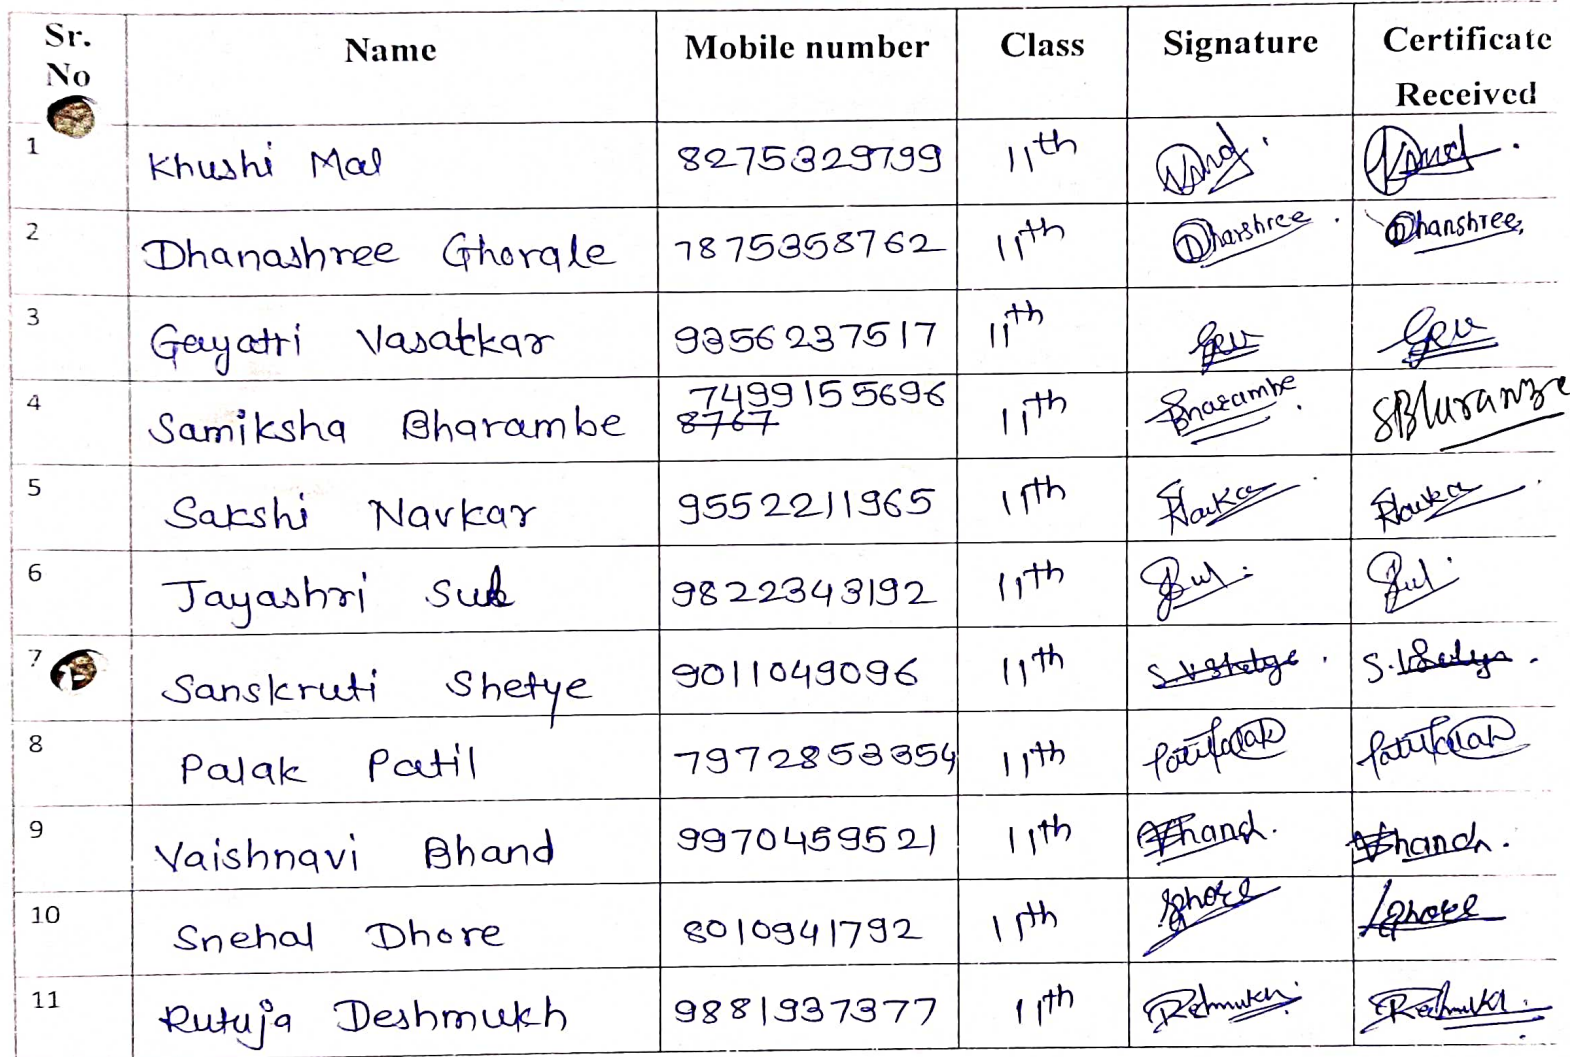 Sr. No Name Mobile number Class Signature Certificate Received
1 Khushi Mal 8275329799 11th
2 Dhanashree Ghorale 7875358762 11th Dhanshree. Dhanshree,
3 Gayatri Vasatkar 9356237517 11th
4 Samiksha Bharambe 7499155696 11th Bharambe
8767
5 Sakshi Navkar 9552211965 11th
6 Jayashri 9822343192 11th
7 Sanskruti Shetye 9011049096 11th S.V.Shetye.
8 Palak Patil 7972853354 11th
9 Vaishnavi Bhand 9970459521 11th Bhand. Bhand.
10 Snehal Dhore 8010941792 11th
11 Rutuja Deshmukh 9881937377 11th